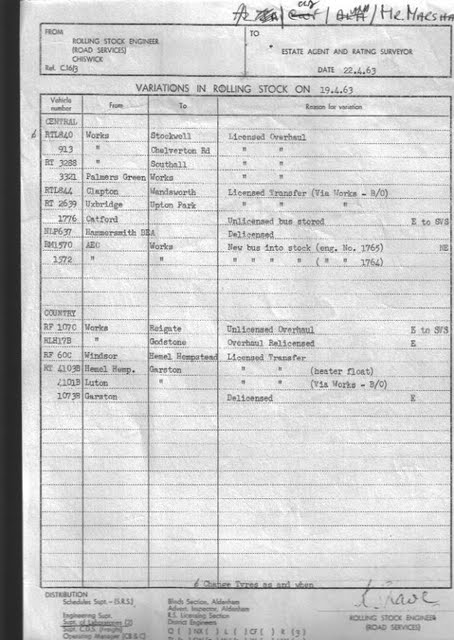 MR. MARSHA
FROM
ROLLING STOCK ENGINEER
(ROAD SERVICES)
CHISWICK
Ref. C.16/3
TO
ESTATE AGENT AND RATING SURVEYOR
DATE 22.4.63
VARIATIONS IN ROLLING STOCK ON 19.4.63
Vehicle number From To Reason for variation
CENTRAL
RTL840 Works Stockwell Licensed Overhaul
913 " Chelverton Rd " "
RT 3288 " Southall " "
3321 Palmers Green Works " "
RTL844 Clapton Wandsworth Licensed Transfer (Via Works - B/O)
RT 2639 Uxbridge Upton Park " "
1776 Catford Unlicensed bus stored E to SVS
NLP637 Hammersmith DEA Delicensed
RM1570 AEC Works New bus into stock (eng. No. 1765) NE
1572 " " " " " " ( " " 1764)
COUNTRY
RF 107C Works Reigate Unlicensed Overhaul E to SVS
RLH17B " Godstone Overhaul Relicensed E
RF 60C Windsor Hemel Hempstead Licensed Transfer
RT 4103B Hemel Hemp. Garston " " (heater float)
4101B Luton " " (Via Works - B/O)
1073B Garston Delicensed E
Change Tyres as and when
DISTRIBUTION
Schedules Supt. - (S.R.S.)
Engineering Supt.
Supt. of Laboratories (2)
Supt. C.D.S. (Freight)
Operating Manager (CB & C)
Block Section, Aldenham
Advert. Inspector, Aldenham
R.S. Licensing Section
District Engineers
ROLLING STOCK ENGINEER
(ROAD SERVICES)